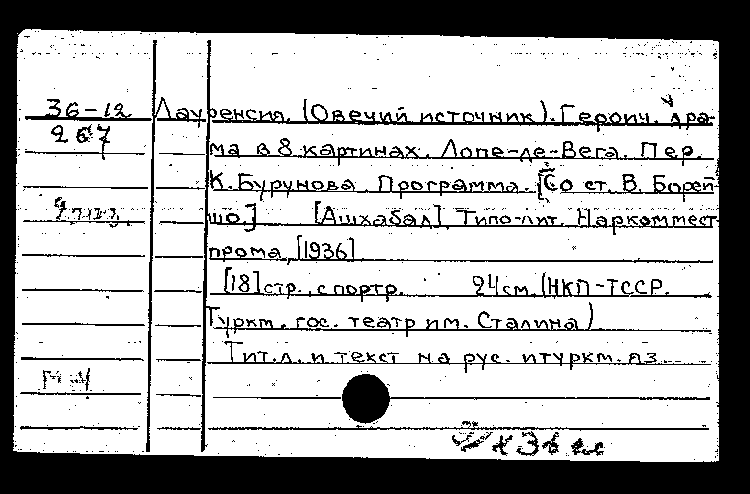 36-12 Лауренсия. (Овечий источник). Героич. дра-
267 ма в 8 картинах. Лопе-де-Вега. Пер.
К. Бурунова. Программа. [Со ст. В. Борей-
шо.] [Ашхабад]. Типо-лит. Наркоммест-
прома, [1936].
[18] стр., с портр. 24 см. (НКП-ТССР.
Туркм. гос. театр им. Сталина)
Тит. л. и текст на рус. и туркм. яз.